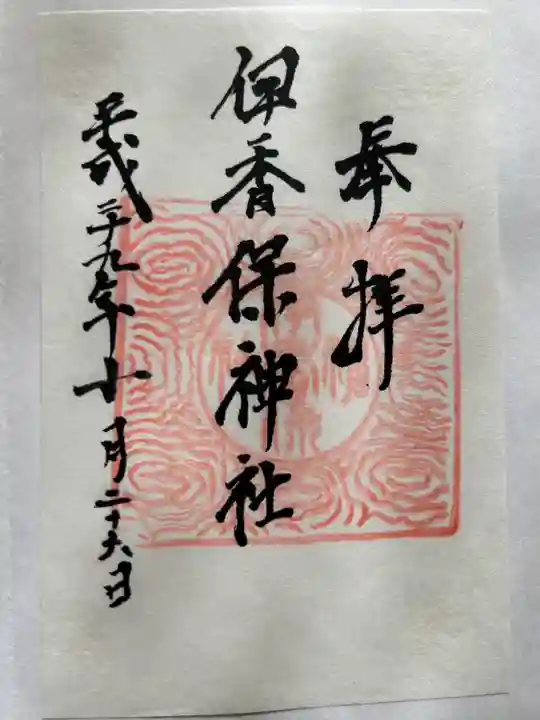 奉拝
伊香保神社
平成二十九年十月二十六日